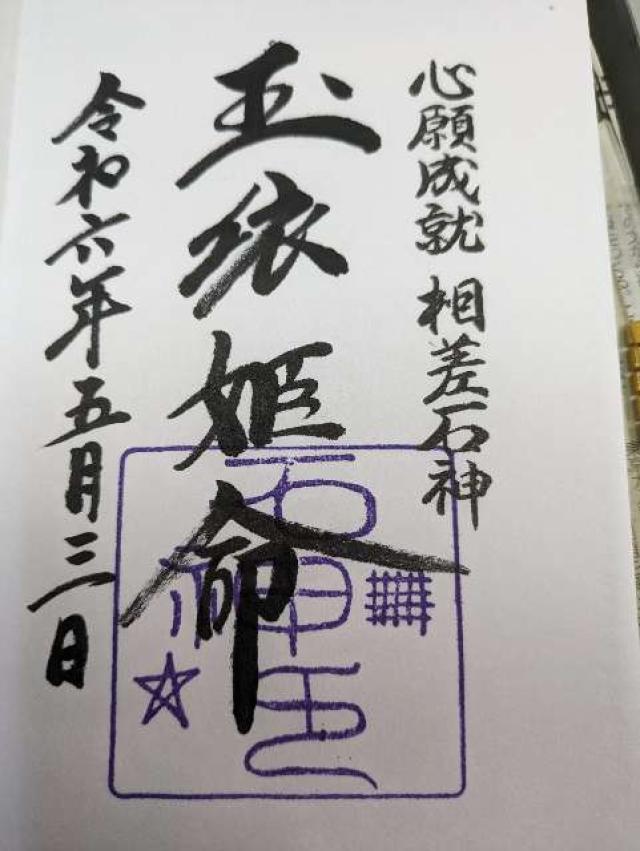 心願成就 相差石神
玉依姫命
令和六年五月三日
石神